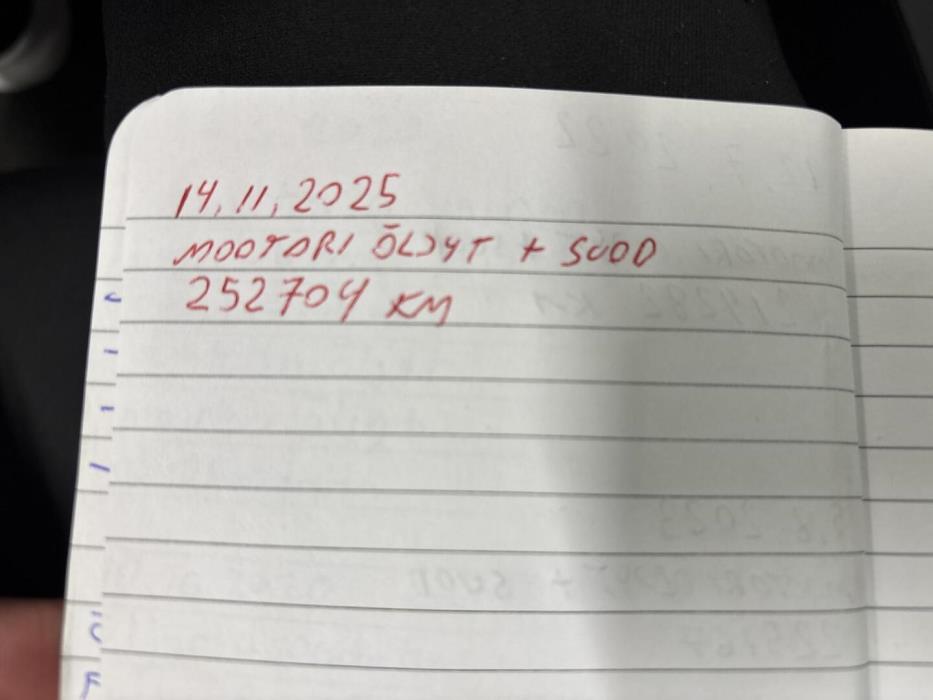 14.11.2025
MOOTORI ÖLJYT + SUOD
252704 KM